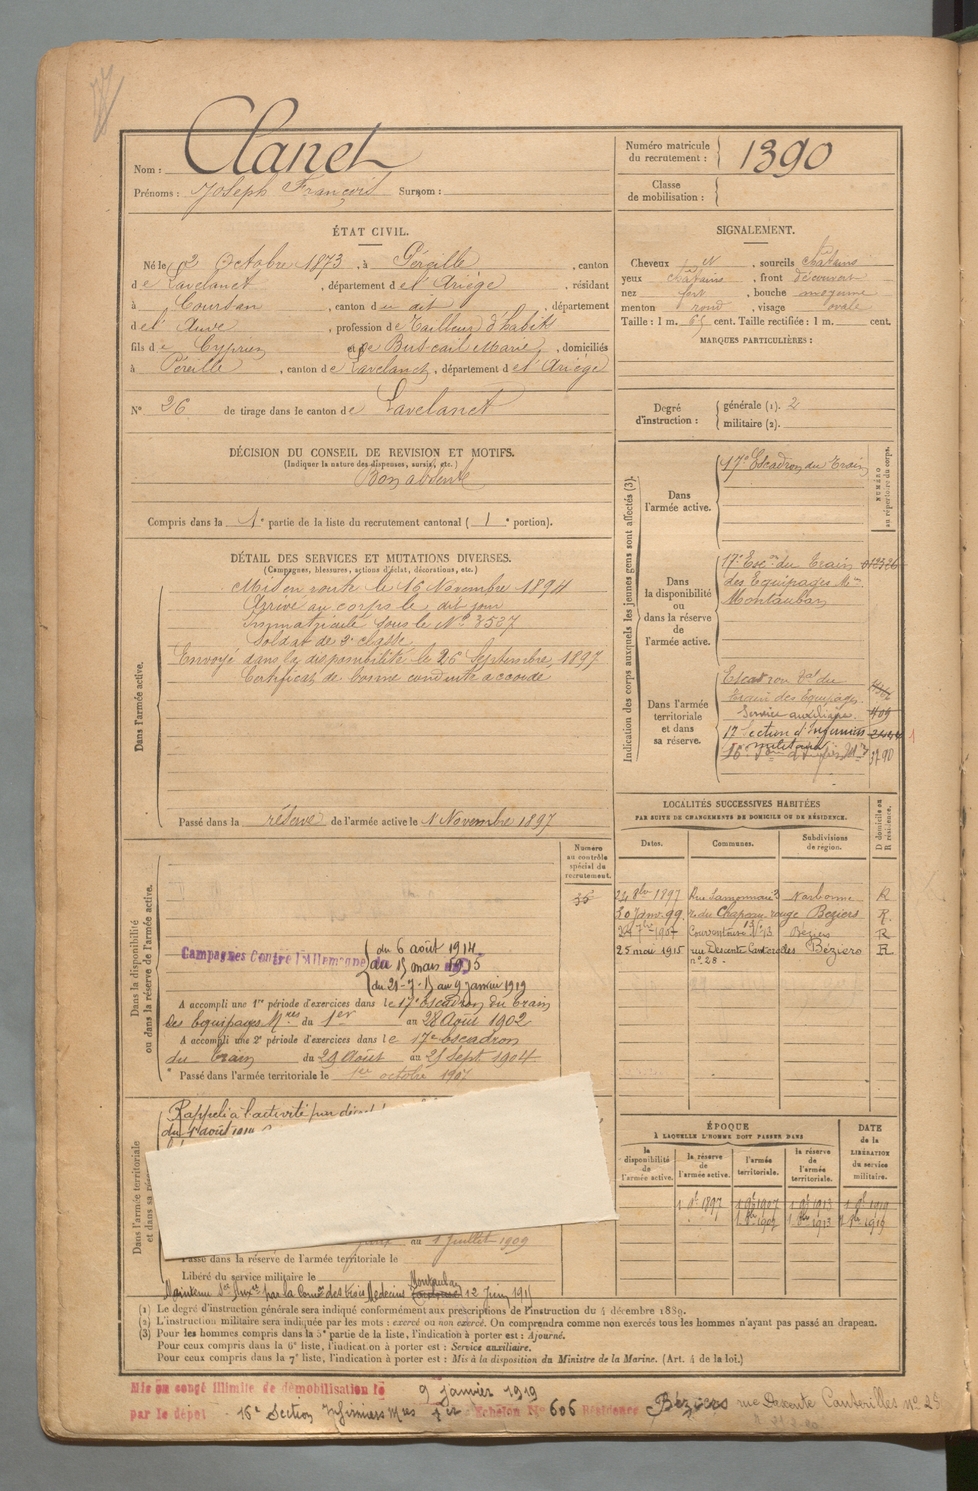 Nom : Clanet
Prénoms : Joseph François Surnom :
Numéro matricule du recrutement : 1390
Classe de mobilisation :
ÉTAT CIVIL.
Né le 2 Octobre 1873, à Péreille, canton
de Lavelanet, département de l'Ariège, résidant
à Coursan, canton de dit, département
de l'Aude, profession de Tailleur d'habits
fils de Cyprien et de Buscail Marie, domiciliés
à Péreille, canton de Lavelanet, département de l'Ariège
N° 26 de tirage dans le canton de Lavelanet
SIGNALEMENT.
Cheveux et, sourcils châtains
yeux châtains, front découvert
nez fort, bouche moyenne
menton rond, visage ovale
Taille : 1 m. 65 cent. Taille rectifiée : 1 m. cent.
MARQUES PARTICULIÈRES :
Degré d'instruction : générale (1). 2
militaire (2).
DÉCISION DU CONSEIL DE REVISION ET MOTIFS.
(Indiquer la nature des dispenses, sursis, etc.)
Bon absent
Compris dans la 1e partie de la liste du recrutement cantonal (1e portion).
DÉTAIL DES SERVICES ET MUTATIONS DIVERSES.
(Campagnes, blessures, actions d'éclat, décorations, etc.)
Dans l'armée active.
Mis en route le 16 Novembre 1894
Arrivé au corps le dit jour
Immatriculé sous le N° 3527
Soldat de 2e classe
Envoyé dans la disponibilité le 26 Septembre 1897
Certificat de bonne conduite accordé
Passé dans la réserve de l'armée active le 1 Novembre 1897
Indication des corps auxquels les jeunes gens sont affectés (3).
NUMÉRO au répertoire du corps.
Dans l'armée active.
17e Escadron du Train
Dans la disponibilité ou dans la réserve de l'armée active.
17e Escon du Train
des Equipages Mres
Montauban
Dans l'armée territoriale et dans sa réserve.
Escadron Tal du
Train des Equipages
Service auxiliaire. 1109
17 Section d'Infirmiers
militaires
3790
LOCALITÉS SUCCESSIVES HABITÉES
PAR SUITE DE CHANGEMENTS DE DOMICILE OU DE RÉSIDENCE.
Dates. Communes. Subdivisions de région. D domicile ou R résidence.
24 8bre 1897 Narbonne R
30 Janv. 99. r. du Chapeau rouge Béziers R.
7bre 1907 N°13 Béziers R
25 mai 1915 rue Descente Canterelles Béziers R
n° 28.
Numéro au contrôle spécial du recrutement.
Dans la disponibilité ou dans la réserve de l'armée active.
Campagnes Contre l'Allemagne du 6 août 1914
au 15 mars 1915
du 21-7-15 au 9 janvier 1919
A accompli une 1re période d'exercices dans le 17e Escadron du Train
des Equipages Mres du 1er au 28 Août 1902
A accompli une 2e période d'exercices dans le 17e Escadron
du Train du 29 Août au 25 Sept 1904
Passé dans l'armée territoriale le 1er octobre 1907
Dans l'armée territoriale
Rappelé à l'activité par
du 1er août 1914
au 1 Juillet 1909
Passé dans la réserve de l'armée territoriale le
Libéré du service militaire le
Maintenu Sce Auxre par la Comon des trois Médecins Montauban 12 Juin 1915
ÉPOQUE
À LAQUELLE L'HOMME DOIT PASSER DANS
la disponibilité de l'armée active. la réserve de l'armée active. l'armée territoriale. la réserve de l'armée territoriale.
DATE de la LIBÉRATION du service militaire.
(1) Le degré d'instruction générale sera indiqué conformément aux prescriptions de l'instruction du 4 décembre 1889.
(2) L'instruction militaire sera indiquée par les mots : exercé ou non exercé. On comprendra comme non exercés tous les hommes n'ayant pas passé au drapeau.
(3) Pour les hommes compris dans la 5e partie de la liste, l'indication à porter est : Ajourné.
Pour ceux compris dans la 6e liste, l'indication à porter est : Service auxiliaire.
Pour ceux compris dans la 7e liste, l'indication à porter est : Mis à la disposition du Ministre de la Marine. (Art. 4 de la loi.)
Mis en congé illimité de démobilisation le 9 janvier 1919
par le dépôt 16e Section Infirmiers Mres 1er Echelon N° 606 Résidence Béziers rue Descente Canterelles n°